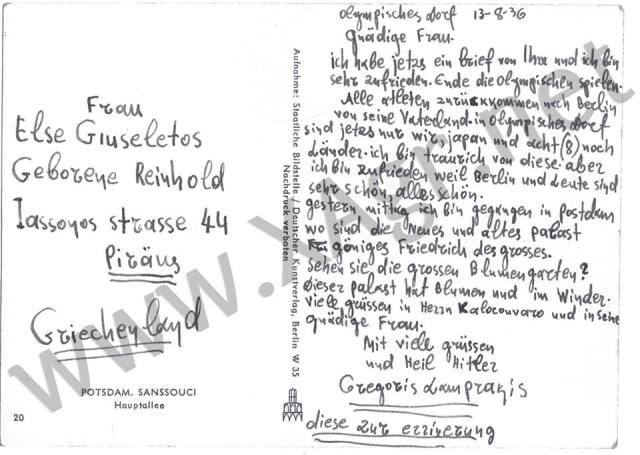 Frau
Else Giuseletos
Geborene Reinhold
Iassonos strasse 44
Piräus
Griechenland
POTSDAM, SANSSOUCI
Hauptallee
20
Aufnahme: Staatliche Bildstelle / Deutscher Kunstverlag, Berlin W 35
Nachdruck verboten
olympisches dorf 13-8-36
gnädige Frau.
ich habe jetzs ein brief von Ihre und ich bin
sehr zufrieden. Ende die olympischen spielen.
Alle atleten zurückkommen nach Berlin
von seine Vaterland. in olympisches dorf
sind jetzs nur wir, japan und acht (8) noch
Länder. ich bin traurich von diese aber
ich bin zufrieden weil Berlin und Leute sind
sehr schön, alles schön.
gestern mittag ich bin gegangen in postdam
wo sind die Neues und altes palast
göniges Friedrich des grosses.
Sehen sie die grossen Blumengarten?
dieser palast hat Blumen und im Winder.
viele grüssen in Herrn Kalocouvaro und in seine
gnädige Frau.
Mit viele grüssen
und Heil Hitler
Gregoris Lamprakis
diese zur errinerung
www.VAsri.net